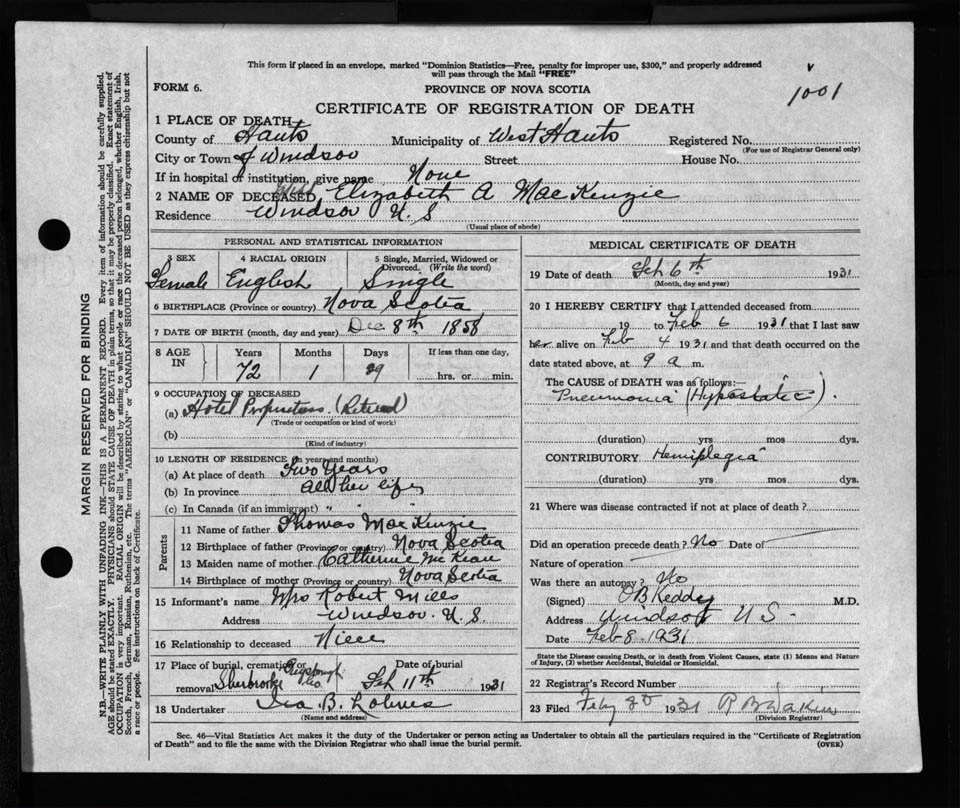 This form if placed in an envelope, marked "Dominion Statistics—Free, penalty for improper use, $300," and properly addressed
will pass through the Mail "FREE"
FORM 6.
PROVINCE OF NOVA SCOTIA
1001
CERTIFICATE OF REGISTRATION OF DEATH
1 PLACE OF DEATH
County of Hants Municipality of West Hants Registered No.
(For use of Registrar General only)
City or Town of Windsor Street House No.
If in hospital or institution, give name None
2 NAME OF DECEASED Elizabeth A MacKenzie
Residence Windsor N.S
(Usual place of abode)
PERSONAL AND STATISTICAL INFORMATION
3 SEX 4 RACIAL ORIGIN 5 Single, Married, Widowed or
Divorced. (Write the word)
Female English Single
6 BIRTHPLACE (Province or country) Nova Scotia
7 DATE OF BIRTH (month, day and year) Dec 8th 1858
8 AGE IN Years Months Days If less than one day,
72 1 29 hrs. or min.
9 OCCUPATION OF DECEASED
(a) Hotel Proprietress (Retired)
(Trade or occupation or kind of work)
(b)
(Kind of industry)
10 LENGTH OF RESIDENCE (in years and months)
(a) At place of death Two Years
(b) In province all her life
(c) In Canada (if an immigrant) " "
Parents
11 Name of father Thomas MacKenzie
12 Birthplace of father (Province or country) Nova Scotia
13 Maiden name of mother Catherine McKean
14 Birthplace of mother (Province or country) Nova Scotia
15 Informant's name Mrs Robert Mills
Address Windsor N.S
16 Relationship to deceased Niece
17 Place of burial, cremation or Date of burial
removal Sherbrooke Feb 11th 1931
18 Undertaker Ira B. Lohnes
(Name and address)
MEDICAL CERTIFICATE OF DEATH
19 Date of death Feb 6th 1931
(Month, day and year)
20 I HEREBY CERTIFY that I attended deceased from
19 to Feb 6 1931 that I last saw
her alive on Feb 4 1931 and that death occurred on the
date stated above, at 9 a m.
The CAUSE of DEATH was as follows:—
Pneumonia (Hypostatic).
(duration) yrs mos dys.
CONTRIBUTORY Hemiplegia
(duration) yrs mos dys.
21 Where was disease contracted if not at place of death?
Did an operation precede death? No Date of
Nature of operation
Was there an autopsy? No
(Signed) OB Keddy M.D.
Address Windsor N S
Date Feb 8 1931
State the Disease causing Death, or in death from Violent Causes, state (1) Means and Nature
of Injury, (2) whether Accidental, Suicidal or Homicidal.
22 Registrar's Record Number
23 Filed 1931
(Division Registrar)
Sec. 46—Vital Statistics Act makes it the duty of the Undertaker or person acting as Undertaker to obtain all the particulars required in the "Certificate of Registration
of Death" and to file the same with the Division Registrar who shall issue the burial permit.
(OVER)
MARGIN RESERVED FOR BINDING
N.B.—WRITE PLAINLY WITH UNFADING INK—THIS IS A PERMANENT RECORD. Every item of information should be carefully supplied.
AGE should be stated EXACTLY. PHYSICIANS should STATE CAUSE OF DEATH in plain terms, so that it may be properly classified. Exact statement of
OCCUPATION is very important. RACIAL ORIGIN will be described by stating to what people or race the deceased person belonged, whether English, Irish,
Scotch, French, German, Russian, Ruthenian, etc. The terms "AMERICAN" or "CANADIAN" SHOULD NOT BE USED as they express citizenship but not
a race or people. See instructions on back of Certificate.